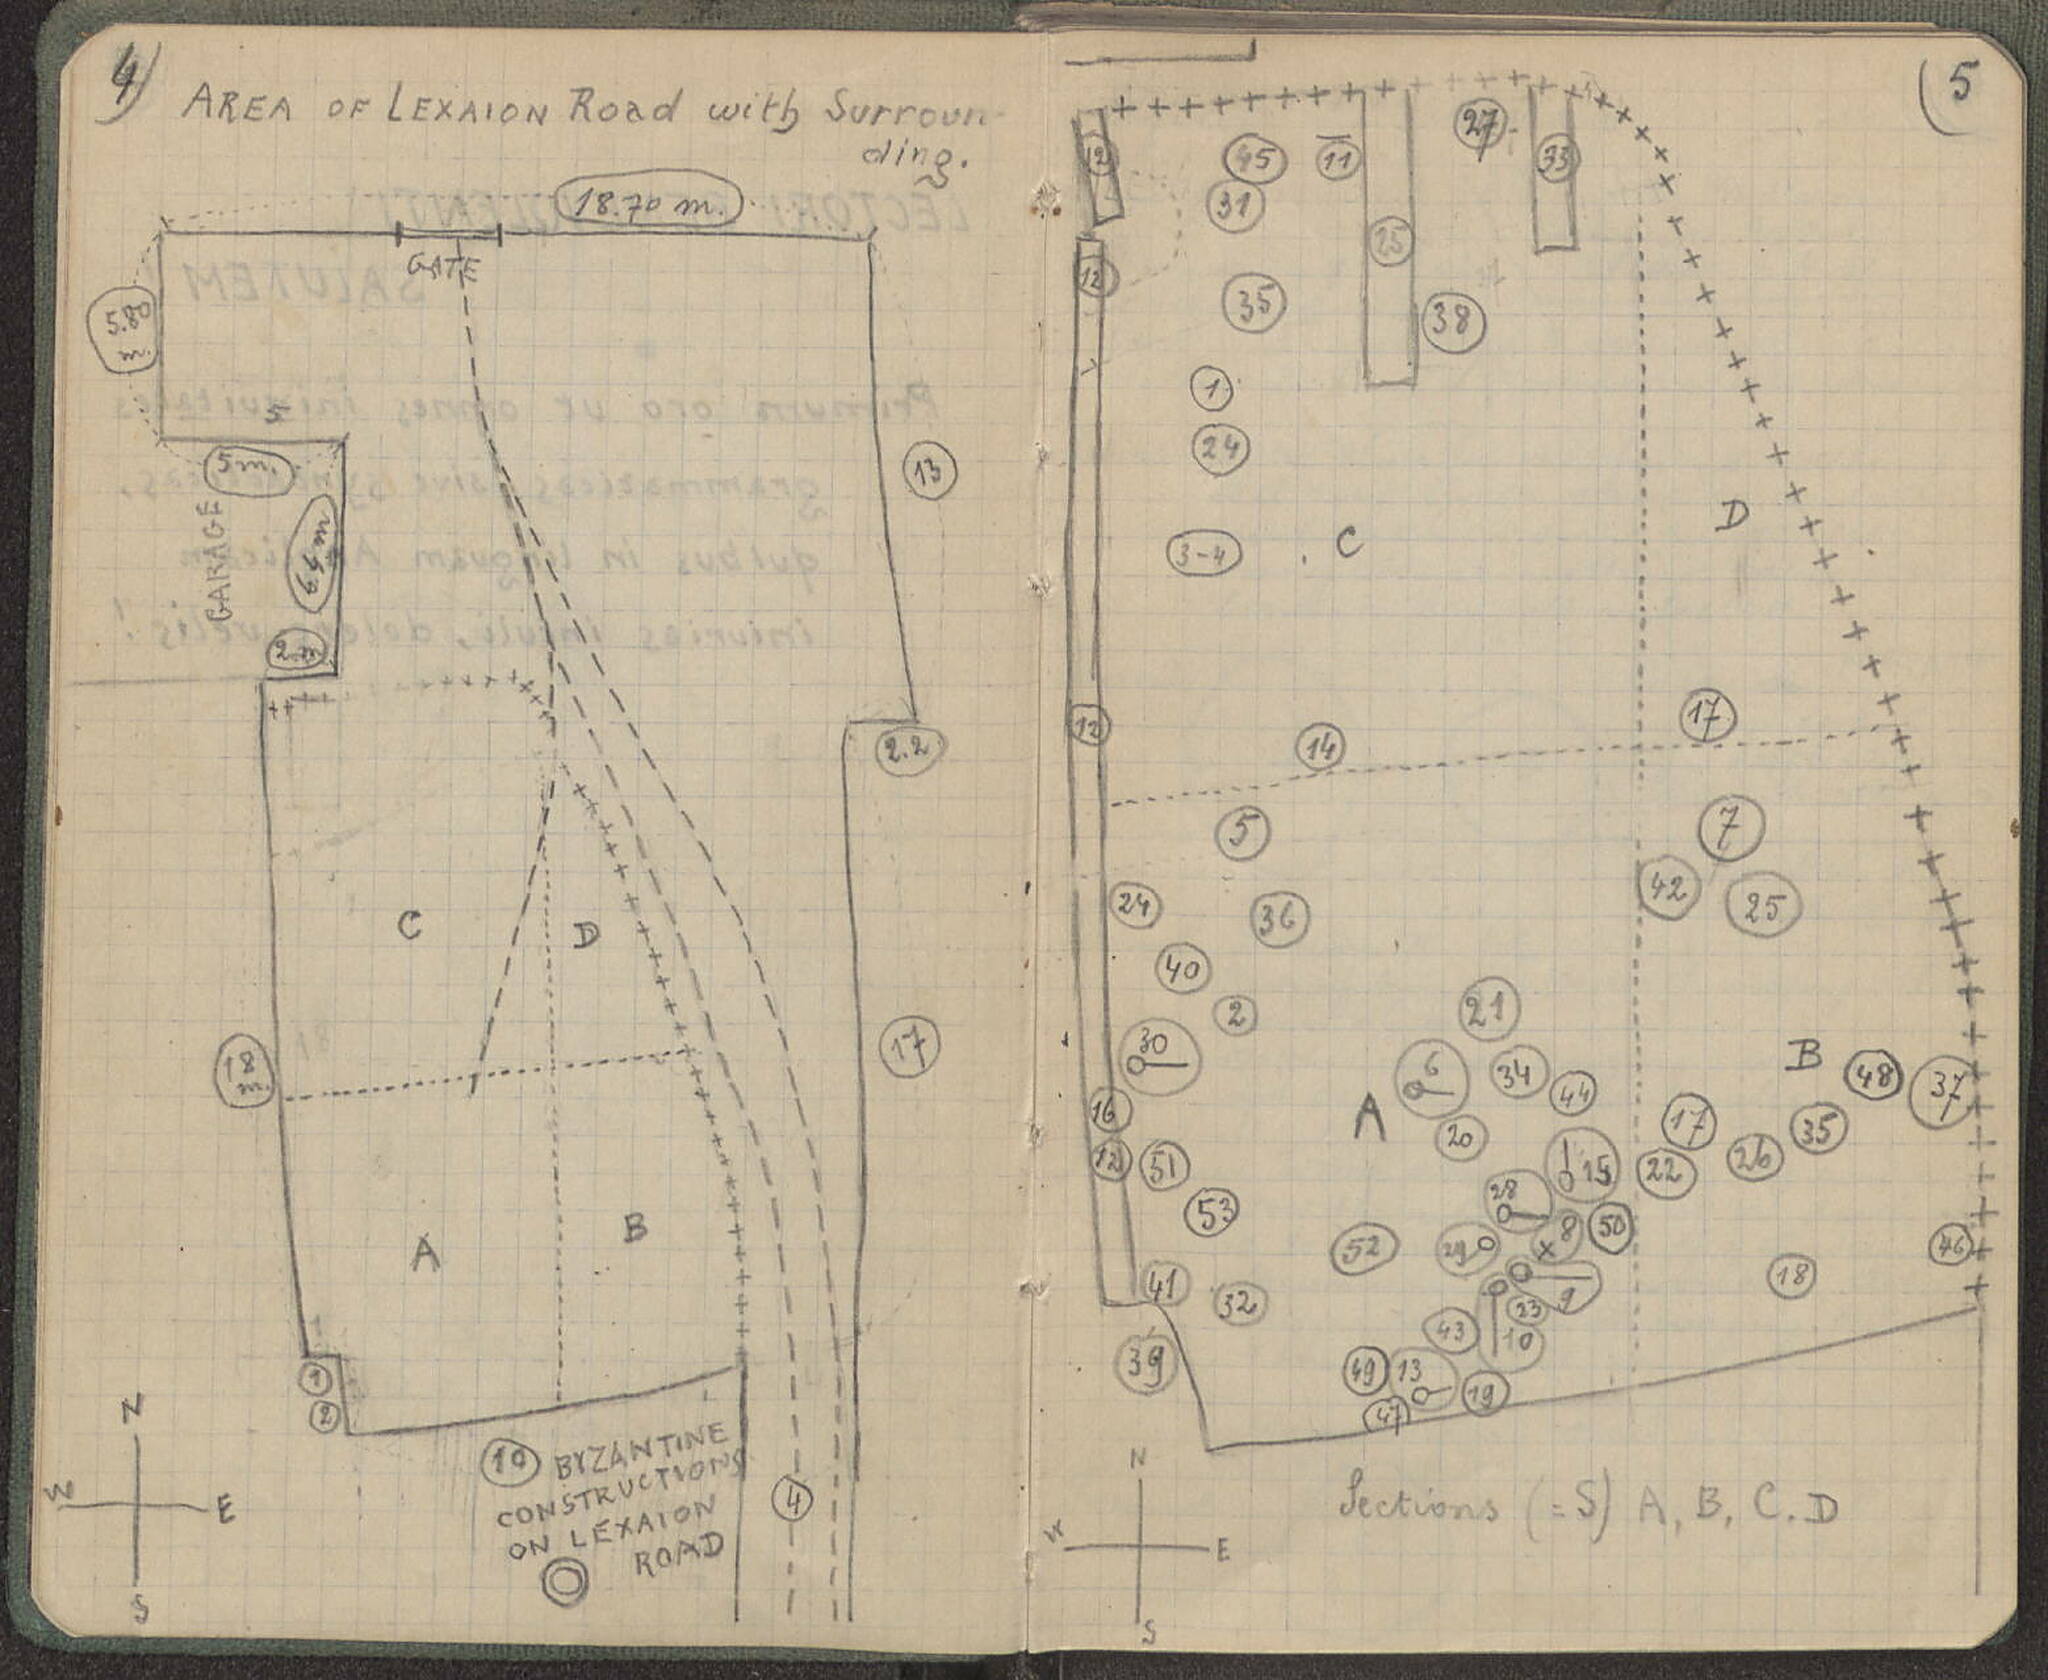 4)
AREA OF LEXAION Road with Surroun-
ding.
18.70 m.
GATE
5.80
m.
5
5 m.
13
GARAGE
6.40 m
2 m
2.2
C
D
18
m.
17
A
B
1
2
N
W
E
S
10 BYZANTINE
CONSTRUCTIONS
ON LEXAION
ROAD
4
(5
12
45
11
27
33
31
12
25
35
38
1
24
3-4
C
D
17
12
14
5
7
42
25
24
36
40
2
21
30
6
34
44
B
48
37
16
A
20
17
35
12
51
15
22
26
53
28
8
50
52
29
46
41
32
9
18
23
43
10
39
49
13
19
47
N
W
E
S
Sections (=S) A, B, C. D